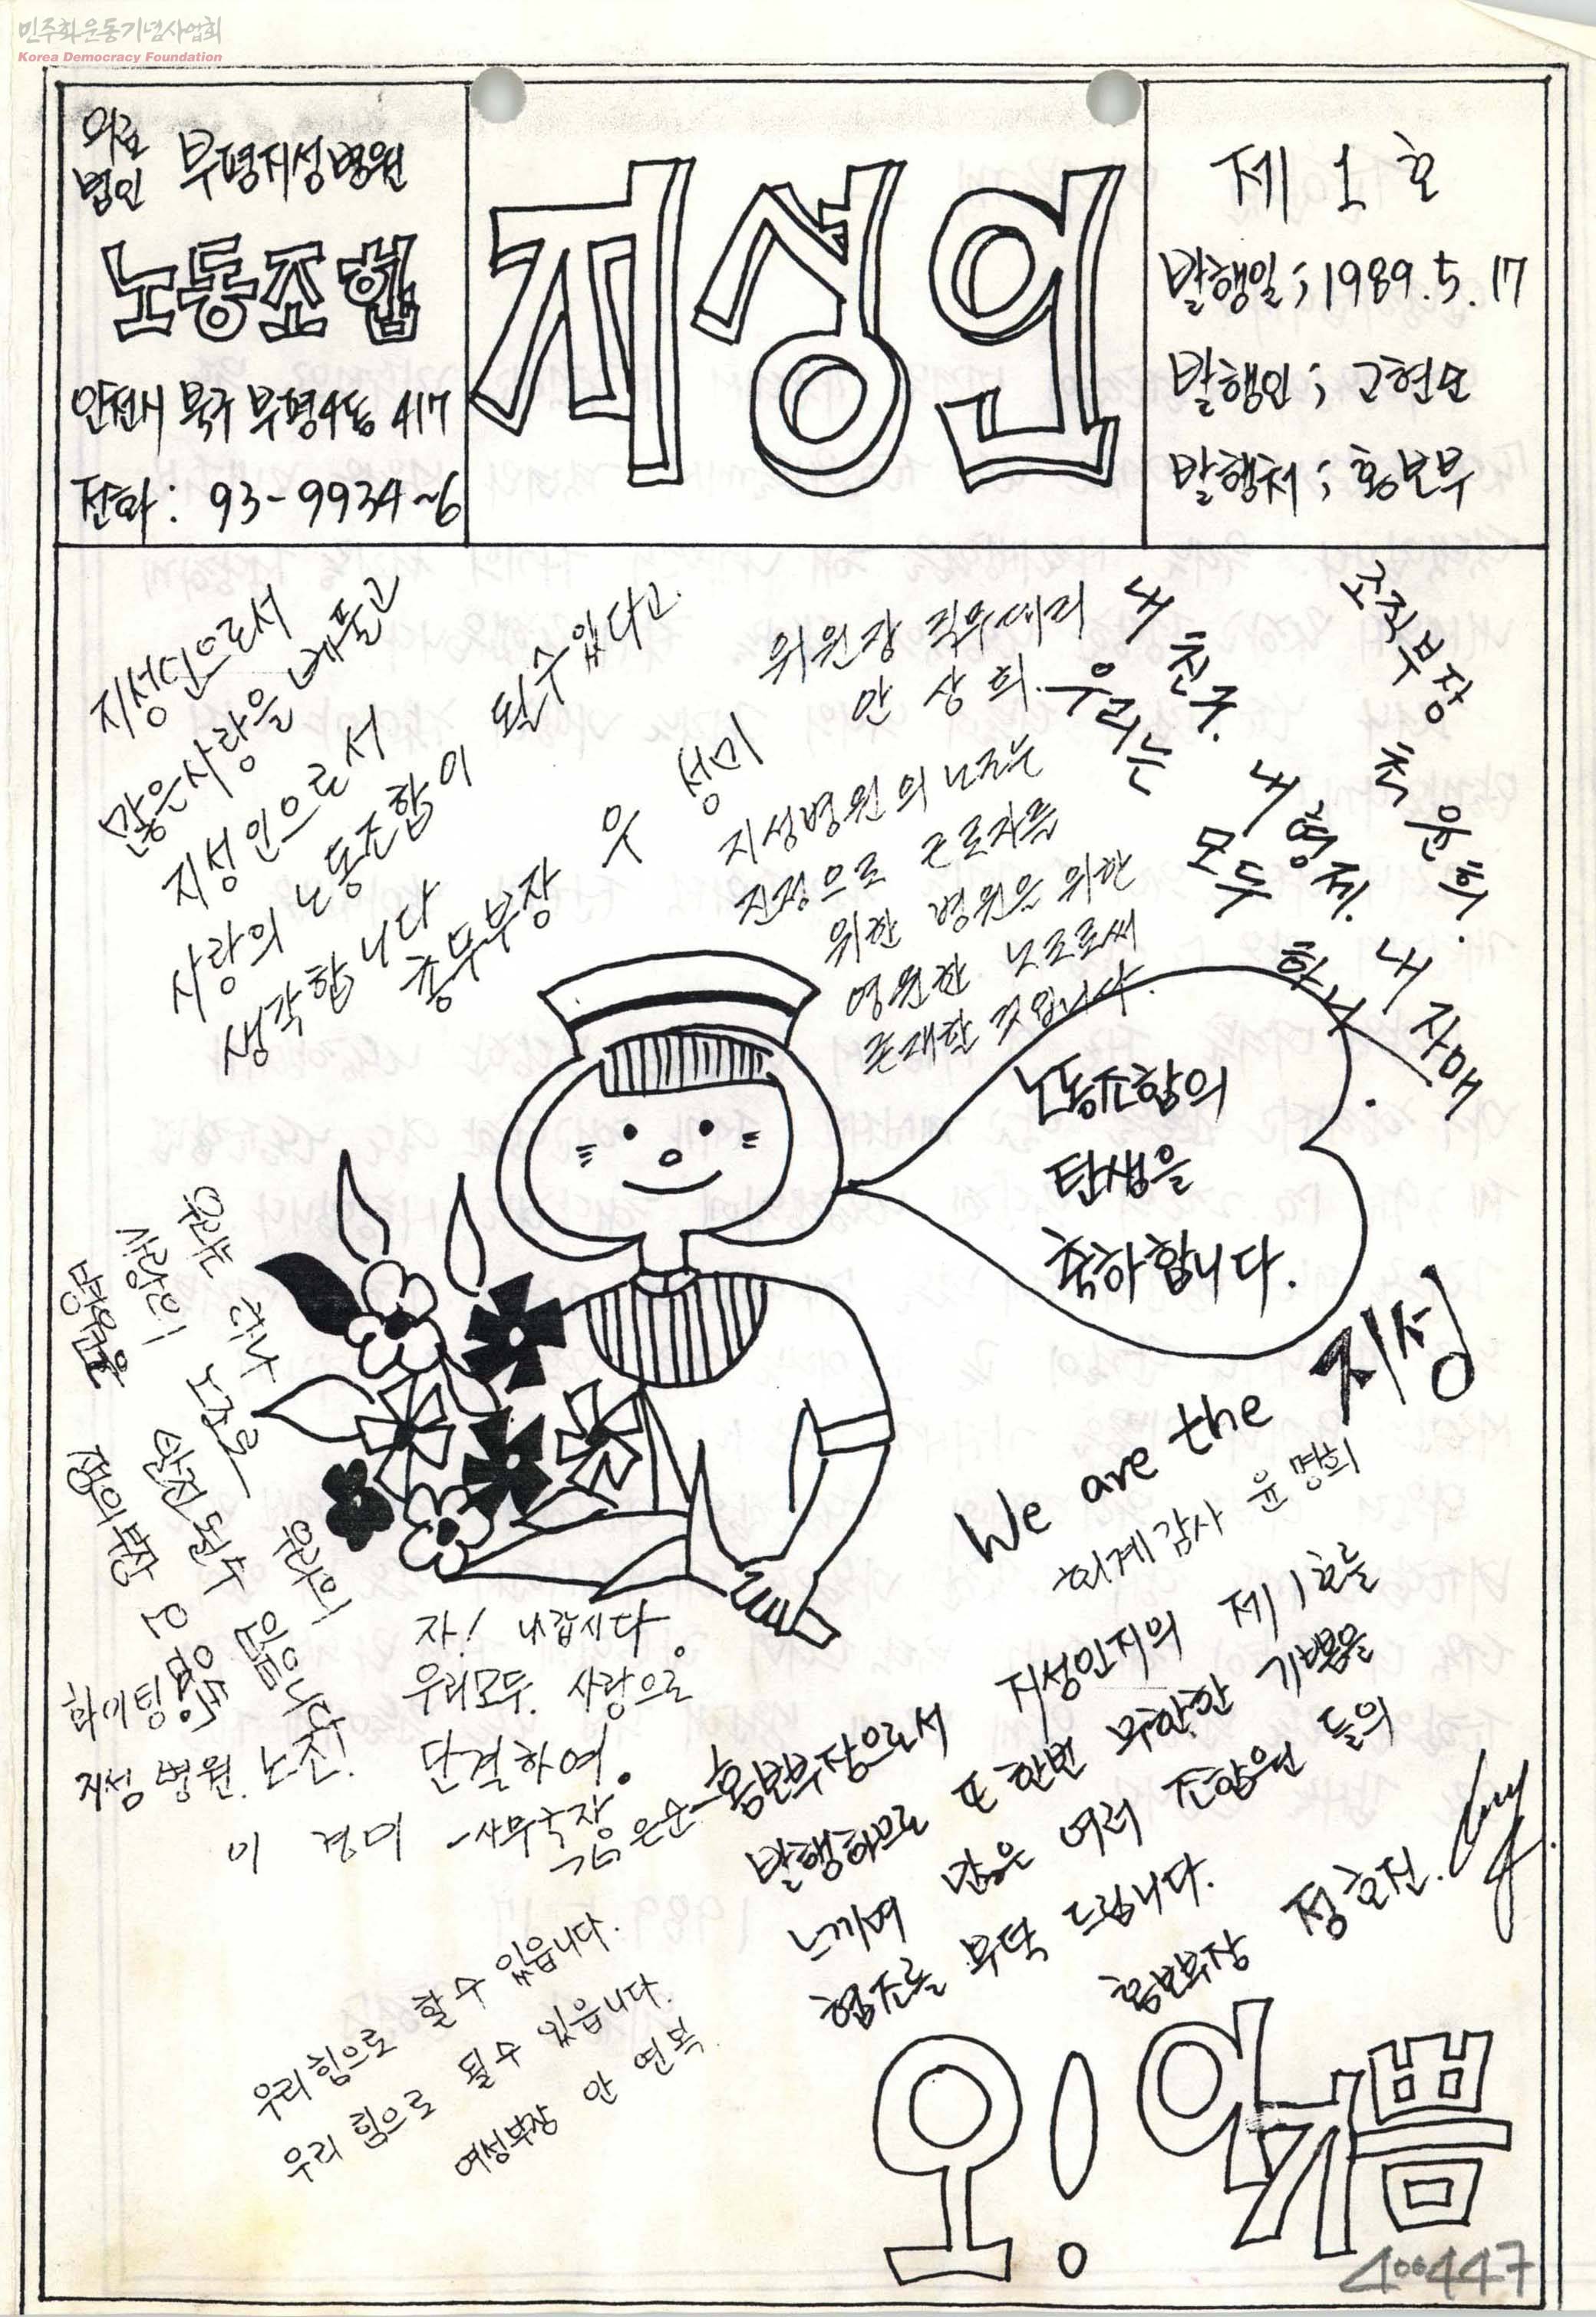 민주화운동기념사업회
Korea Democracy Foundation
의료
법인 부평지성병원
노동조합
인천시 북구 부평4동 417
전화: 93-9934~6
지성인
제 1 호
발행일; 1989. 5. 17
발행인; 고현모
발행처; 홍보부
지성인으로서
많은사랑을 베풀고
지성인으로서
사랑의 노동조합이 될수있다고
생각합니다
총무부장 우 성미
위원장 직무대리
안 상 희.
지성병원의 노조는
진정으로 근로자를
위한 병원을 위한
영원한 노조로써
존재할 것입니다.
조직부장 천 윤희.
내 친구. 내 형제. 내 자매
우리는 모두 하나
노동조합의
탄생을
축하합니다.
We are the 지성
회계감사 윤명희
우리는 하나 우리의
사랑의 노조로 발전될수 있읍니다.
쟁의부장 오
화이팅
지성 병원. 노조!
이 경미
자! 나갑시다.
우리모두. 사랑으로
단결하여.
-사무국장
김은순-
홍보부장으로서 지성인지의 제1호를
발행하므로 또 한번 무한한 기쁨을
느끼며 많은 여러 조합원 들의
협조를 부탁 드립니다.
홍보부장 정효진.
우리힘으로 할수 있읍니다.
우리 힘으로 될수 있읍니다.
여성부장 안 연복
오! 예쁨
400447